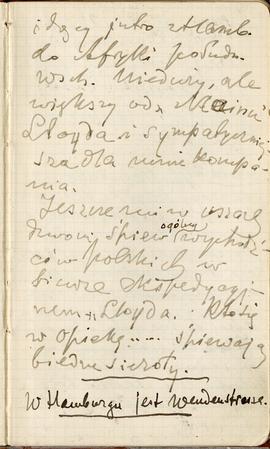 idący jutro z Hamb.
do Afryki połudn.
wsch. Nieduży, ale
większy od "Main"
Lloyda i sympatyczniej
sza dla mnie kompa
nia.
Jeszcze mi w uszach
dzwoni śpiew ogólny wychodź
ców polskich w
biurze ekspedycyj
nem Lloyda. Kto się
w opiekę.... śpiewają
biedne sieroty.
W Hamburgu jest Wendenstrasse.